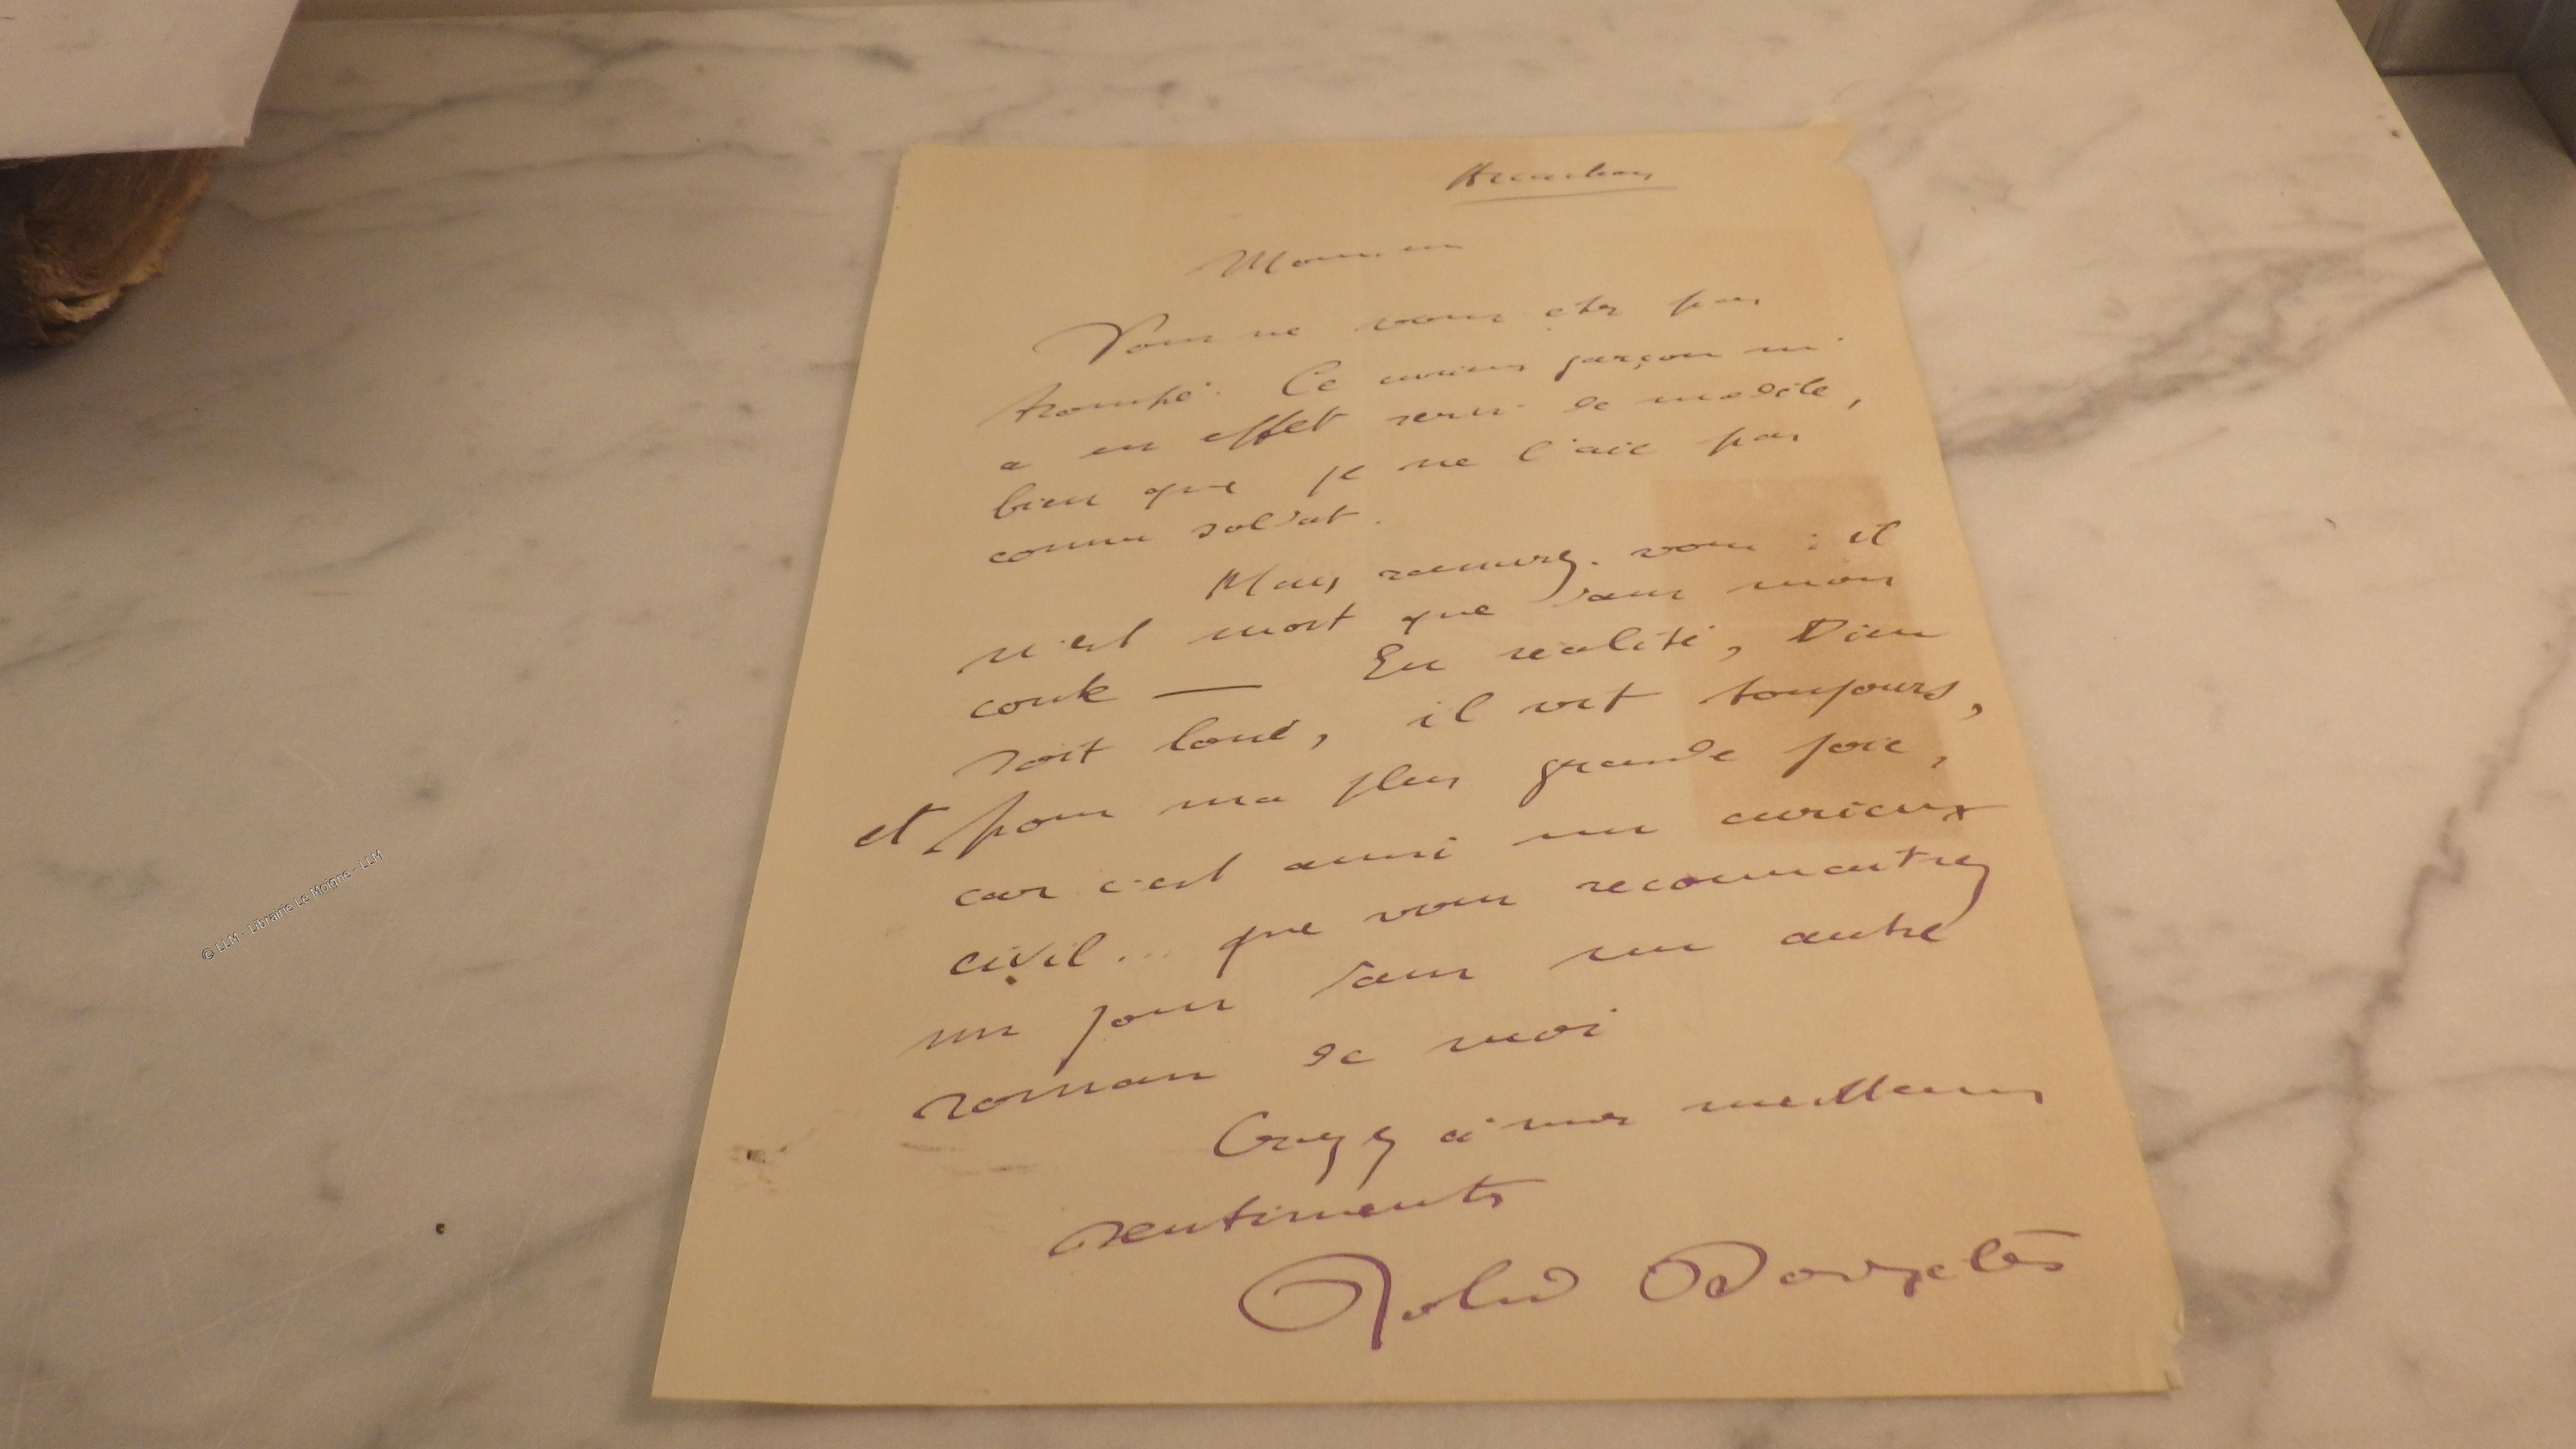 Arcachon
Monsieur
Vous ne vous êtes pas
trompé. Ce curieux garçon m'
a en effet servi de modèle,
bien que je ne l'aie pas
connu soldat.
Mais rassurez-vous : il
n'est mort que dans mon
conte — En réalité, Dieu
soit loué, il vit toujours,
et pour ma plus grande joie,
car c'est aussi un curieux
civil... que vous reconnaîtrez
un jour dans un autre
roman de moi
Croyez à mes meilleurs
sentiments
Roland Dorgelès
© LLM - Librairie Le Moigne - LLM